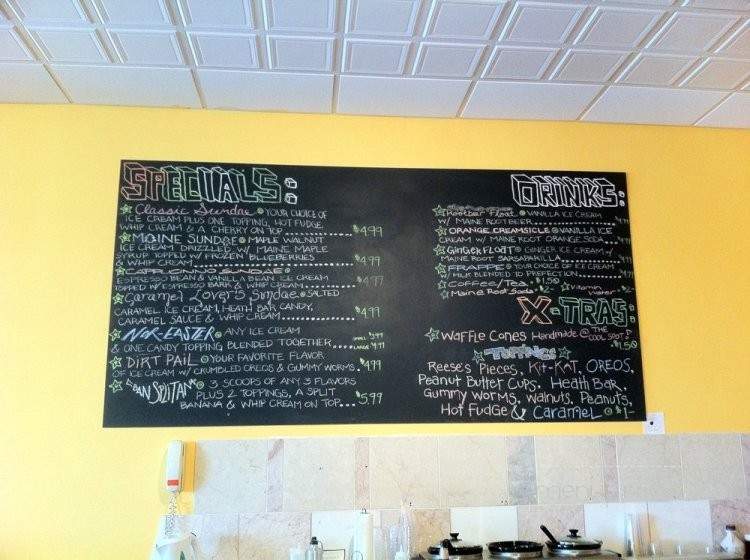 SPECIALS:
Classic Sundae YOUR CHOICE OF
ICE CREAM PLUS ONE TOPPING, HOT FUDGE,
WHIP CREAM & A CHERRY ON TOP $4.99
MAINE SUNDAE MAPLE WALNUT
ICE CREAM DRIZZLED W/ MAINE MAPLE
SYRUP TOPPED W/ FROZEN BLUEBERRIES
& WHIP CREAM $4.99
CAPPUCCINO SUNDAE
ESPRESSO BEAN & VANILLA BEAN ICE CREAM
TOPPED W/ ESPRESSO BARK & WHIP CREAM $4.99
Caramel Lover's Sundae SALTED
CARAMEL ICE CREAM, HEATH BAR CANDY,
CARAMEL SAUCE & WHIP CREAM $4.99
NOR-EASTER ANY ICE CREAM
& ONE CANDY TOPPING BLENDED TOGETHER LARGE 4.99
DIRT PAIL YOUR FAVORITE FLAVOR
OF ICE CREAM W/ CRUMBLED OREOS & GUMMY WORMS $4.99
3 SCOOPS OF ANY 3 FLAVORS
PLUS 2 TOPPINGS, A SPLIT
BANANA & WHIP CREAM ON TOP $5.99
DRINKS:
Rootbeer Float VANILLA ICE CREAM
W/ MAINE ROOT BEER 4.99
ORANGE CREAMSICLE VANILLA ICE
CREAM W/ MAINE ROOT ORANGE SODA 4.99
GINGER FLOAT GINGER ICE CREAM W/
MAINE ROOT SARSAPARILLA 4.99
FRAPPE YOUR CHOICE OF ICE CREAM
& MILK BLENDED TO PERFECTION 4.99
COFFEE/TEA $1.50 Vitamin
Maine Root Soda $2 Water
X-TRAS:
WAFFLE CONES Handmade @ THE
COOL SPOT! $1.50
TOPPINGS
Reese's Pieces, Kit-Kat, OREOS,
Peanut Butter Cups, Heath Bar,
Gummy Worms, Walnuts, Peanuts,
Hot Fudge & Caramel $1-